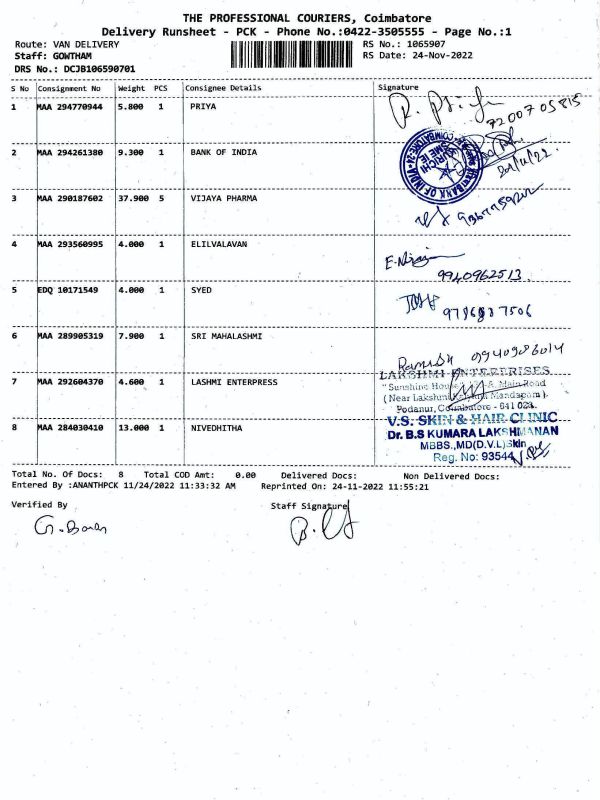 THE PROFESSIONAL COURIERS, Coimbatore
Delivery Runsheet - PCK - Phone No.:0422-3505555 - Page No.:1
Route: VAN DELIVERY RS No.: 1065907
Staff: GOWTHAM RS Date: 24-Nov-2022
DRS No.: DCJB106590701
S No Consignment No Weight PCS Consignee Details Signature
1 MAA 294770944 5.800 1 PRIYA
7200705815
2 MAA 294261380 9.300 1 BANK OF INDIA
BANK OF INDIA
3 MAA 290187602 37.900 5 VIJAYA PHARMA
4 MAA 293560995 4.000 1 ELILVALAVAN
9940962513
5 EDQ 10171549 4.000 1 SYED
6 MAA 289905319 7.900 1 SRI MAHALASHMI
Ramesh
LAKSHMI ENTERPRISES
7 MAA 292604370 4.600 1 LASHMI ENTERPRESS
"Sunshine House" Main Road
(Near Lakshmi Mandapam)
Podanur, Coimbatore - 641 023.
8 MAA 284030410 13.000 1 NIVEDHITHA
V.S. SKIN & HAIR CLINIC
Dr. B.S KUMARA LAKSHMANAN
MBBS.,MD(D.V.L)Skin
Reg. No: 93544
Total No. Of Docs: 8 Total COD Amt: 0.00 Delivered Docs: Non Delivered Docs:
Entered By :ANANTHPCK 11/24/2022 11:33:32 AM Reprinted On: 24-11-2022 11:55:21
Verified By Staff Signature